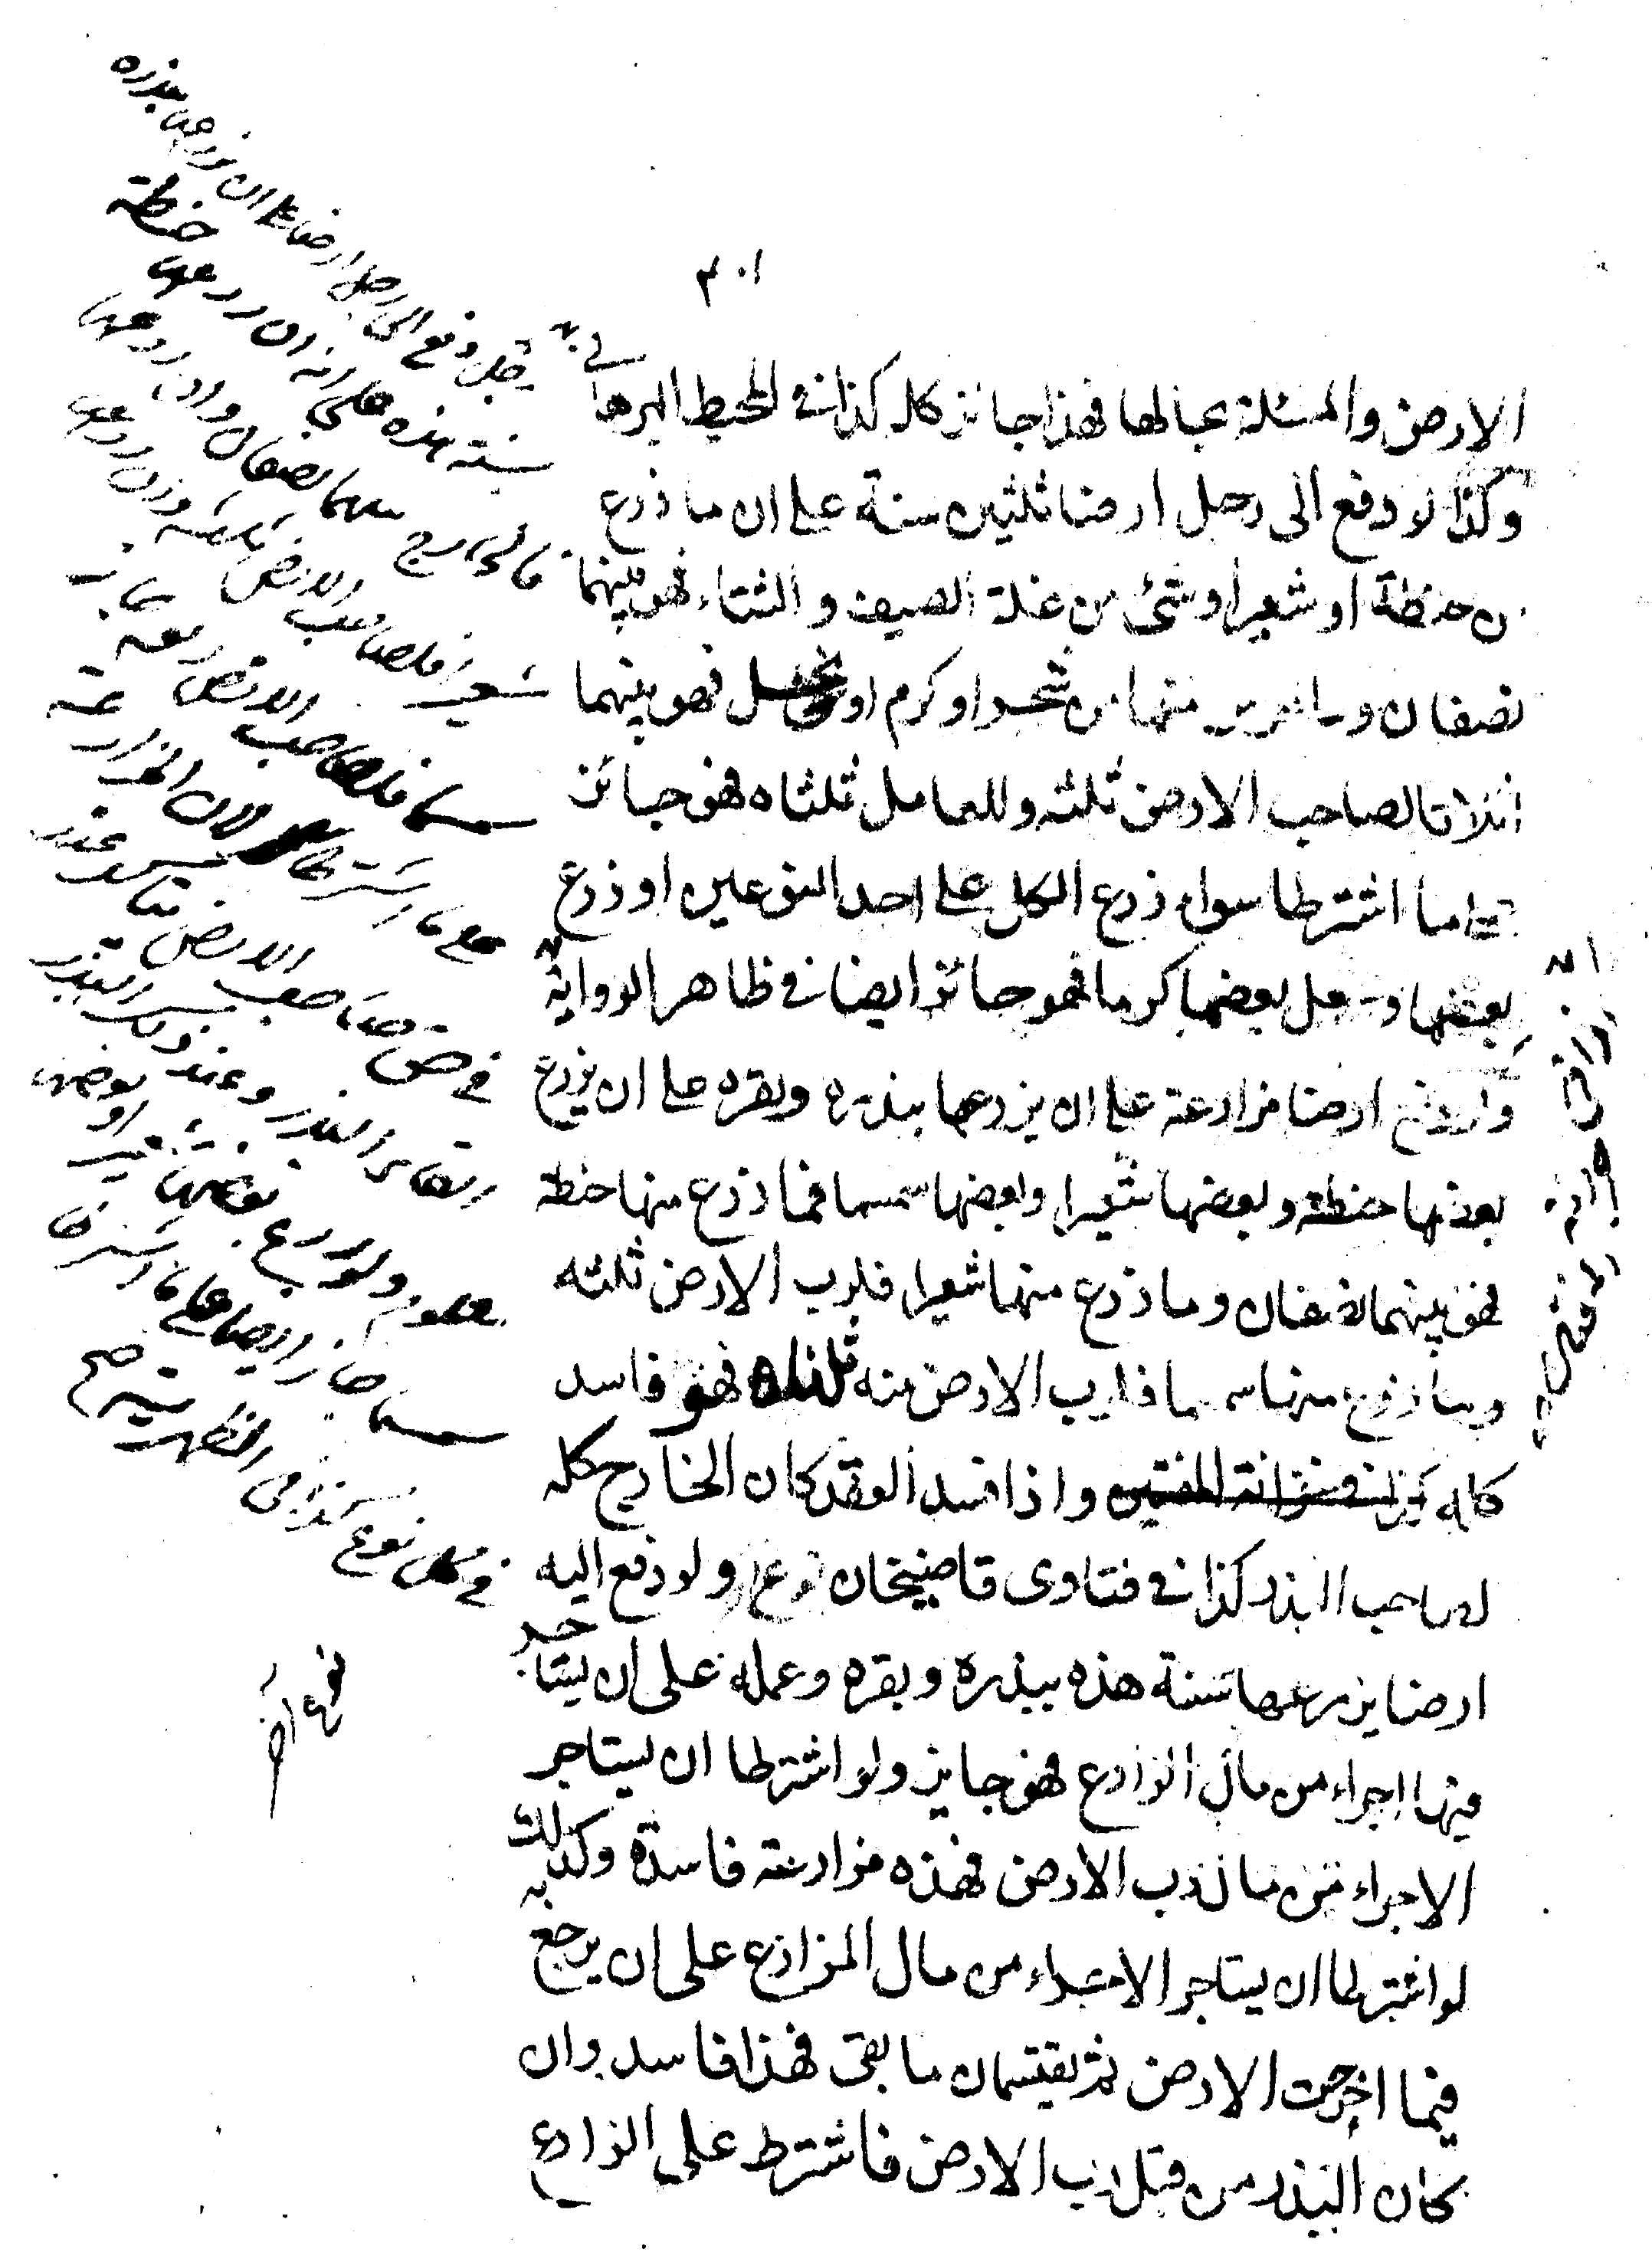 ٣٠١
الارض والمسئلة بحالها فهذا جائز كله كذا فى المحيط البرهانى
وكذا لو دفع الى رجل ارضا ثلثين سنة على ان ما زرع
من حنطة او شعير او شئ من غلة الصيف والشتاء فهو بينهما
نصفان وما غرس منها من شجر او كرم او نخل فهو بينهما
اثلاثا لصاحب الارض ثلثه وللعامل ثلثاه فهو جائز
على ما اشترطا سواء زرع الكل على احد النوعين او زرع
بعضها وجعل بعضها كرما فهو جائز ايضا فى ظاهر الرواية
ولو دفع ارضا مزارعة على ان يزرعها ببذره وبقره على ان يزرع
بعضها حنطة وبعضها شعيرا وبعضها سمسما فما زرع منها حنطة
فهو بينهما نصفان وما زرع منها شعيرا فلرب الارض ثلثه
وما زرع منها سمسما فلرب الارض منه ثلثاه فهو فاسد
كله كذا فى خزانة المفتين واذا فسد العقد كان الخارج كله
لصاحب البذر كذا فى فتاوى قاضيخان نوع اخر ولو دفع اليه
ارضا يزرعها سنة هذه ببذره وبقره وعمله على ان يستاجر
فيها اجراء من مال الزارع فهو جايز ولو اشترطا ان يستاجر
الاجراء من مال رب الارض فهذه مزارعة فاسدة وكذلك
لو اشترطا ان يستاجر الاجراء من مال المزارع على ان يرجع به
فيما اخرجت الارض ثم يقتسمان ما بقى فهذا فاسد وان
كان البذر من قبل رب الارض فاشترط على الزارع
رجل دفع الى رجل ارضا على ان يزرعها ببذره
سنته هذه على انه ان زرعها حنطة
فالخارج بينهما نصفان وان زرعها
شعيرا فلصاحب الارض ثلثه وان زرعها
سمسما فلصاحب الارض ربعه جاز
على ما اشترطا لان المزارعة
فى حق صاحب الارض تتاكد عند
القاء البذر وعند ذلك البذر
معلوم ولو زرع بعضها شعيرا وبعضها
سمسما جاز ايضا على ما اشترطا
فى كل نوع كذا فى الظهيرية صح
نوع اخر